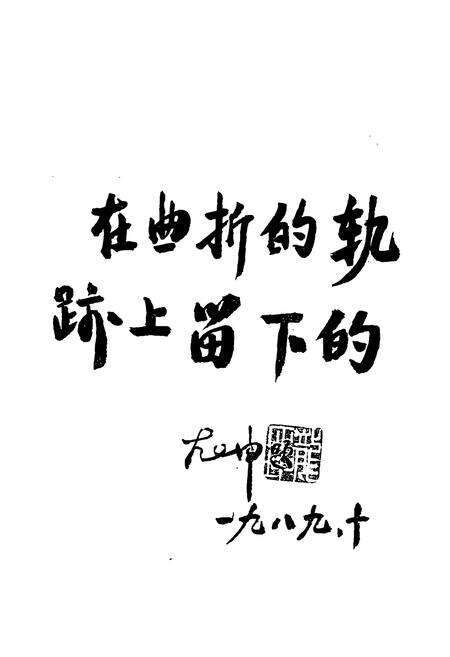 在曲折的轨
跡上留下的
一九八九、十